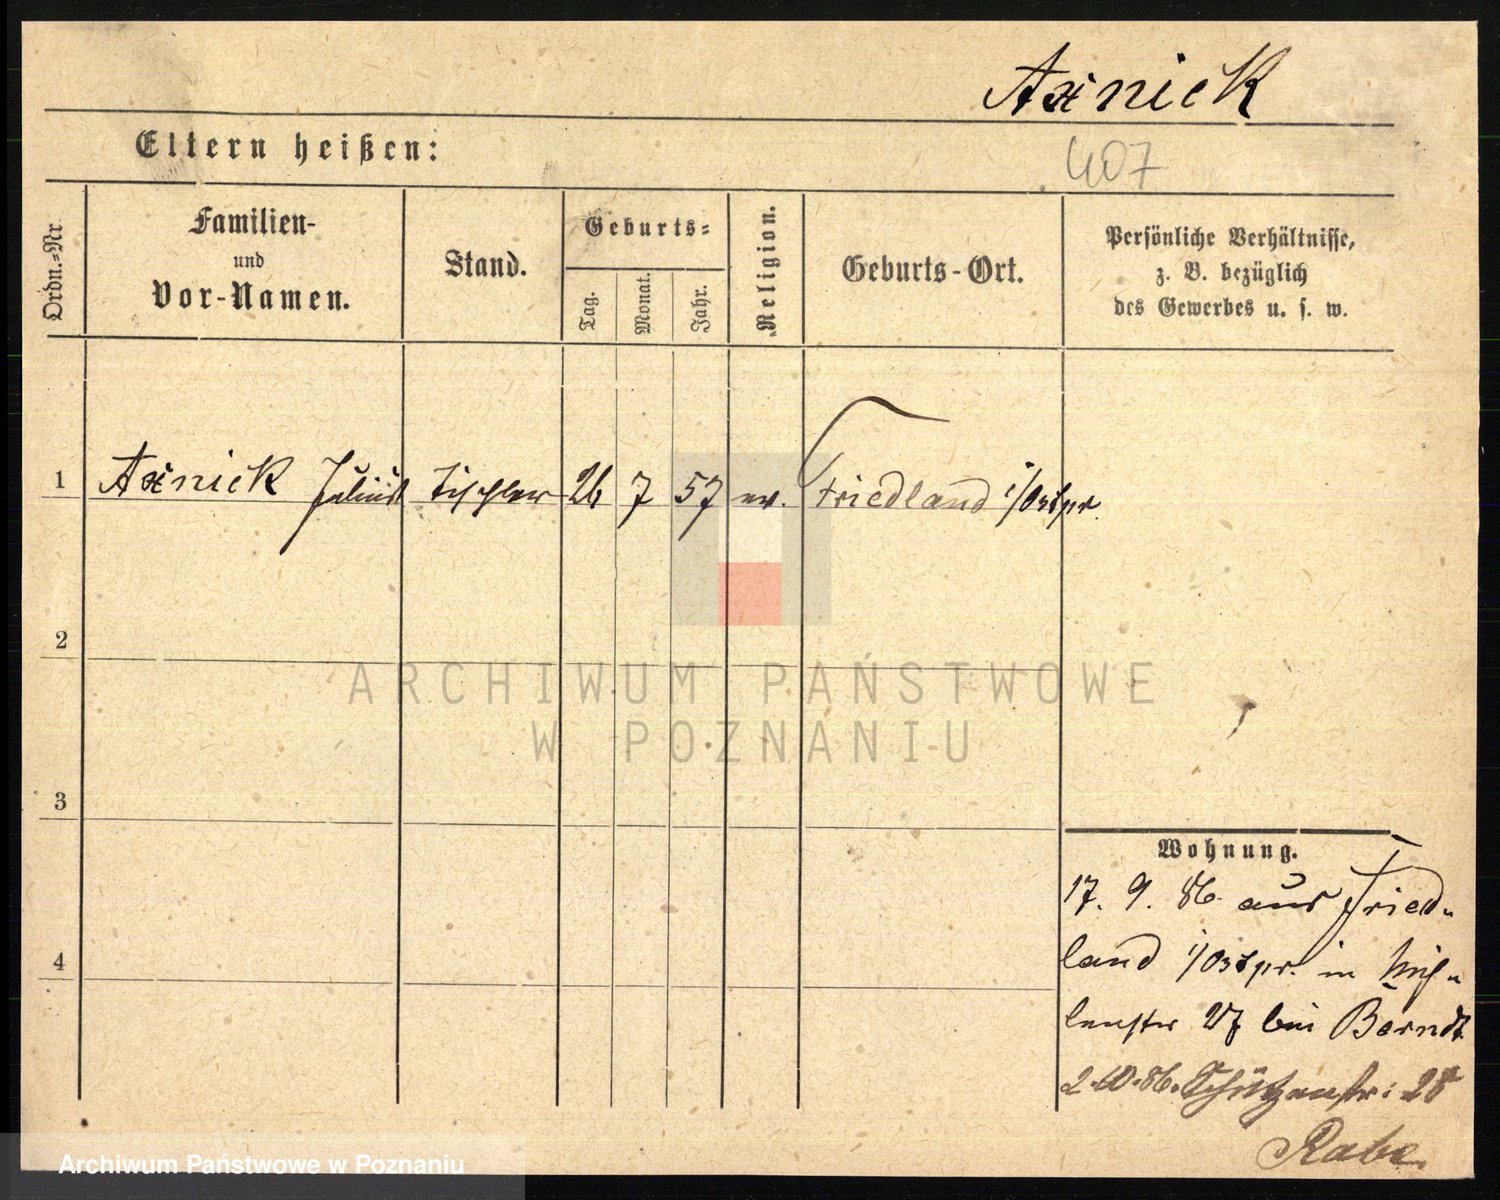 Axnick
Eltern heißen:
407
Ordn.-Nr.
Familien-
und
Vor-Namen.
Stand.
Geburts-
Tag.
Monat.
Jahr.
Religion.
Geburts-Ort.
Persönliche Verhältnisse,
z. B. bezüglich
des Gewerbes u. s. w.
1 Axnick Julius Tischler 26 7 57 ev. Friedland i/Ostpr.
2
ARCHIWUM PAŃSTWOWE
W POZNANIU
3
Wohnung.
17. 9. 86. aus Fried-
4
land i/Ostpr. in Müh-
lenstr 27 bei Berndt
2.10.86. Schützenstr: 28
Rabe.
Archiwum Państwowe w Poznaniu